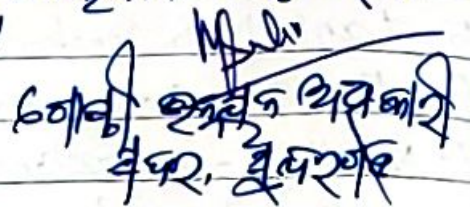 ଗୋଷ୍ଠୀ ଉନ୍ନୟନ ଅଧିକାରୀ
ସଦର, ସୁନ୍ଦରଗଡ଼